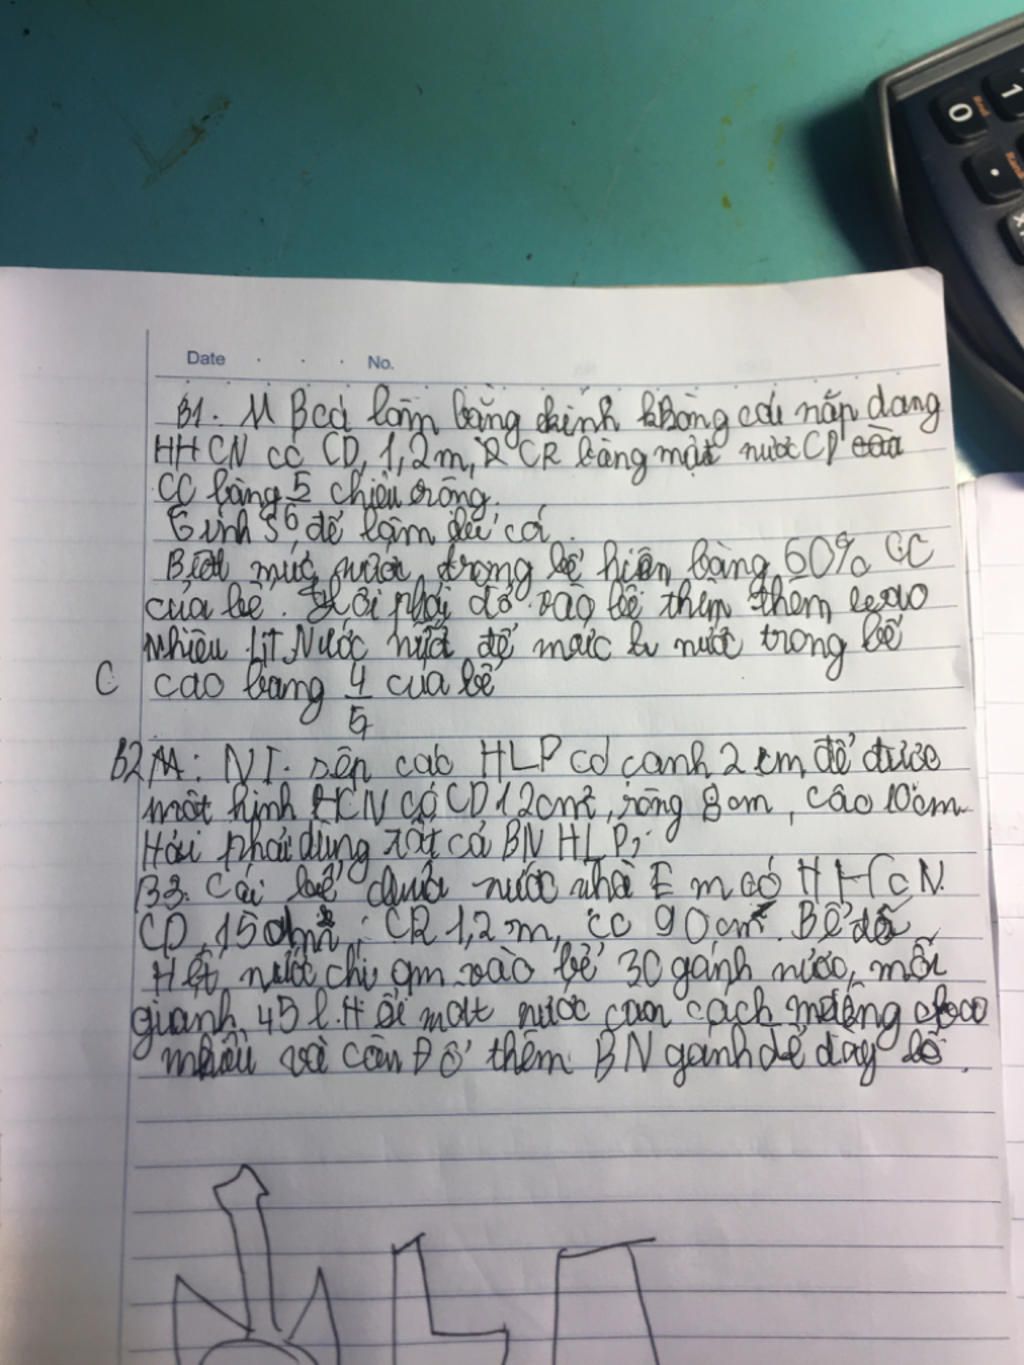 Date . . . No.
B1. M Bcá làm bằng kính không cái nắp dang
HHCN có CD, 1,2m, CR bằng một nước CD
CC bằng 5/6 chiều rộng.
Tính S để làm bể cá.
Biết mức nước trong bể hiên bằng 60% CC
của bể. Hỏi phải đổ vào bể thêm thêm bao
nhiêu lít Nước nữa để mức nước trong bể
C cao bang 4/5 cua bể
B2 : NT. sếp các HLP có canh 2 cm để được
một hình HCN có CD 12cm², rông 8cm, cao 10cm
Hỏi phải dùng tất cả BN HLP?
B3. Cái bể chứa nước nhà Em có HHCN.
CD, 15dm², CR 1,2m, CC 90cm². Bể đã
Hết nước chi am vào bể 30 gánh nước, mỗi
gianh 45l. Hỏi mặt nước con cách miệng bao
nhiêu và còn Đổ thêm BN gánh để đay bể.
0
1
.